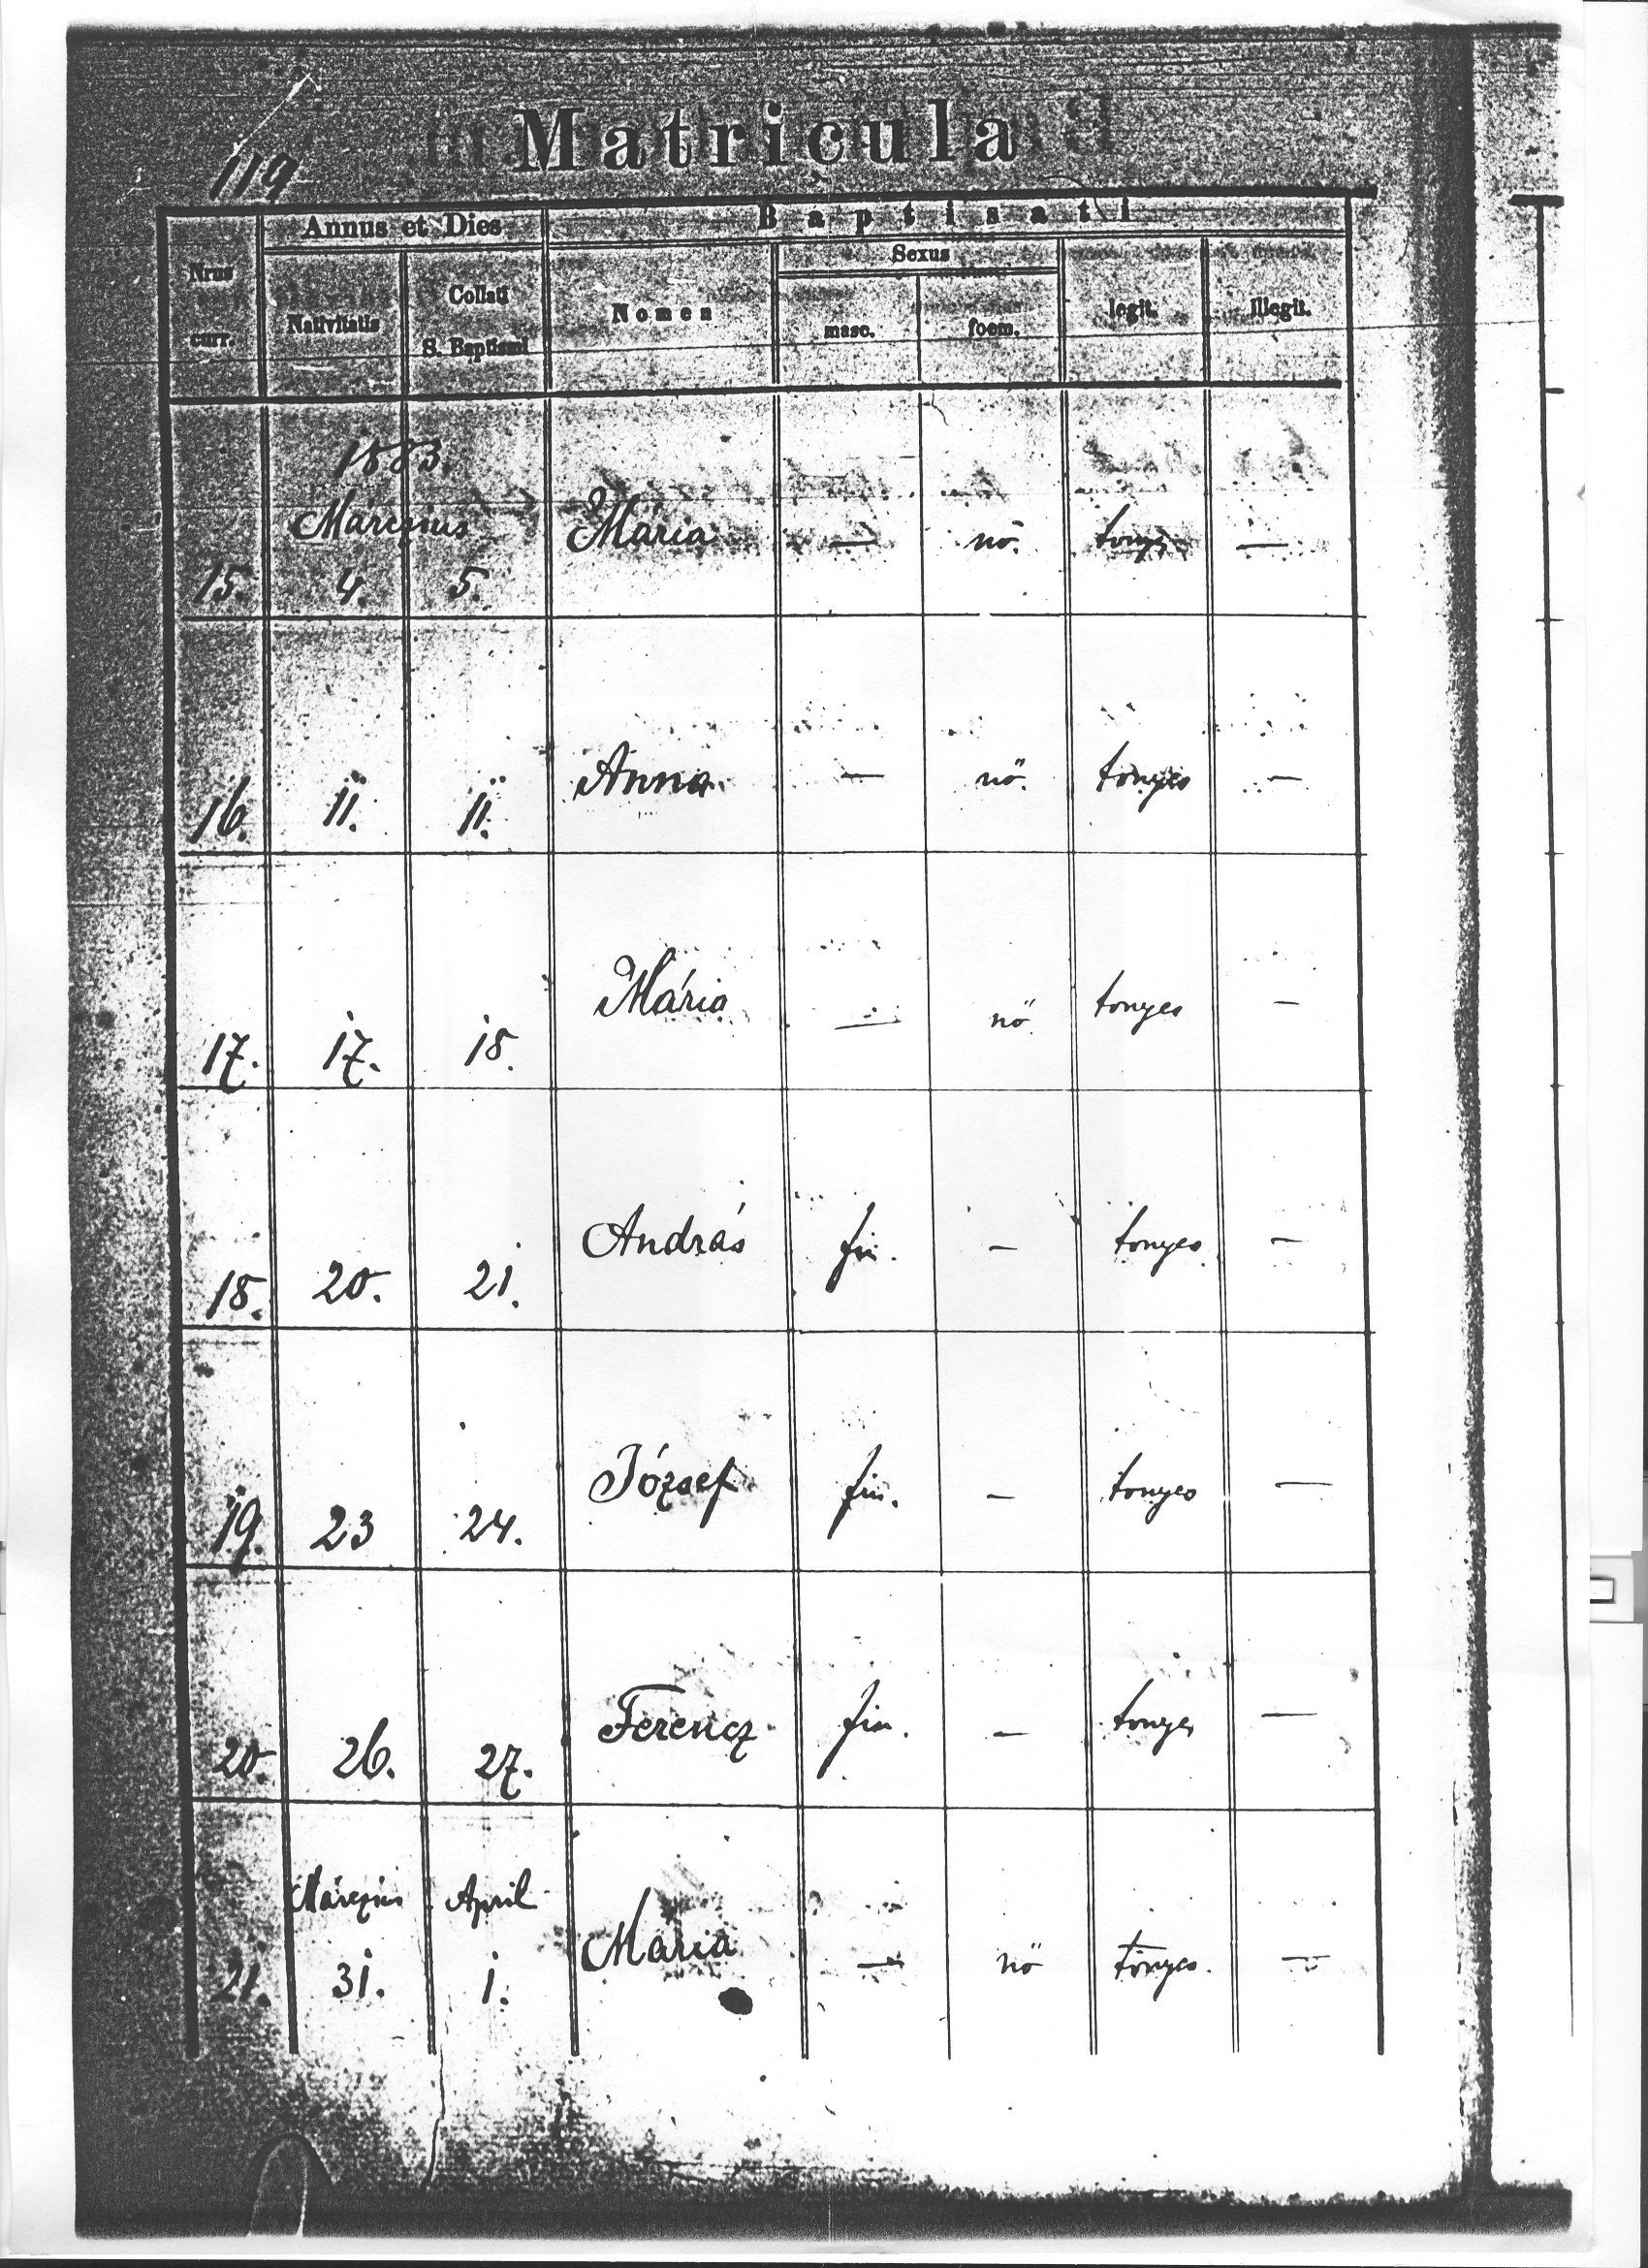 119
Matricula
Annus et Dies
Baptisati
Nrus curr.
Nativitatis
Collati S. Baptismi
Nomen
Sexus
masc.
foem.
legit.
illegit.
1883
Márczius
15. 4. 5. Mária — nő. —
16. 11. 11. Anna — nő. tönyes —
17. 17. 18. Mária — nő. tönyes —
18. 20. 21. András fiu. — tönyes —
19. 23 24. József fiu. — tönyes —
20. 26. 27. Ferencz fiu. — tönyes —
Márczius April
21. 31. 1. Mária — nő tönyes. —